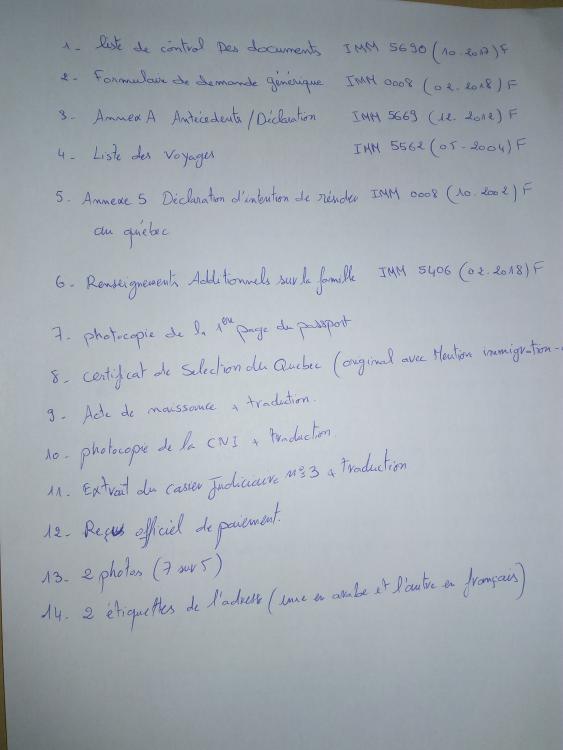 1- liste de contrôl Des documents IMM 5690 (10-2017) F
2- Formulaire de demande générique IMM 0008 (02-2018) F
3- Annex A Antécédents/Déclaration IMM 5669 (12-2012) F
4- Liste des Voyages IMM 5562 (05-2004) F
5- Annexe 5 Déclaration d'intention de résider IMM 0008 (10-2002) F
au québec
6- Renseignements Additionnels sur la famille IMM 5406 (02-2018) F
7- photocopie de la 1ere page du passport
8- certificat de Selection du Quebec (original avec Mention immigration-
9- Acte de naissance + traduction.
10- photocopie de la CNI + traduction
11- Extrait du casier Judiciaire N°3 + traduction
12- Reçus officiel de paiement.
13- 2 photos (7 sur 5)
14- 2 étiquettes de l'adress (une en arabe et l'autre en français)